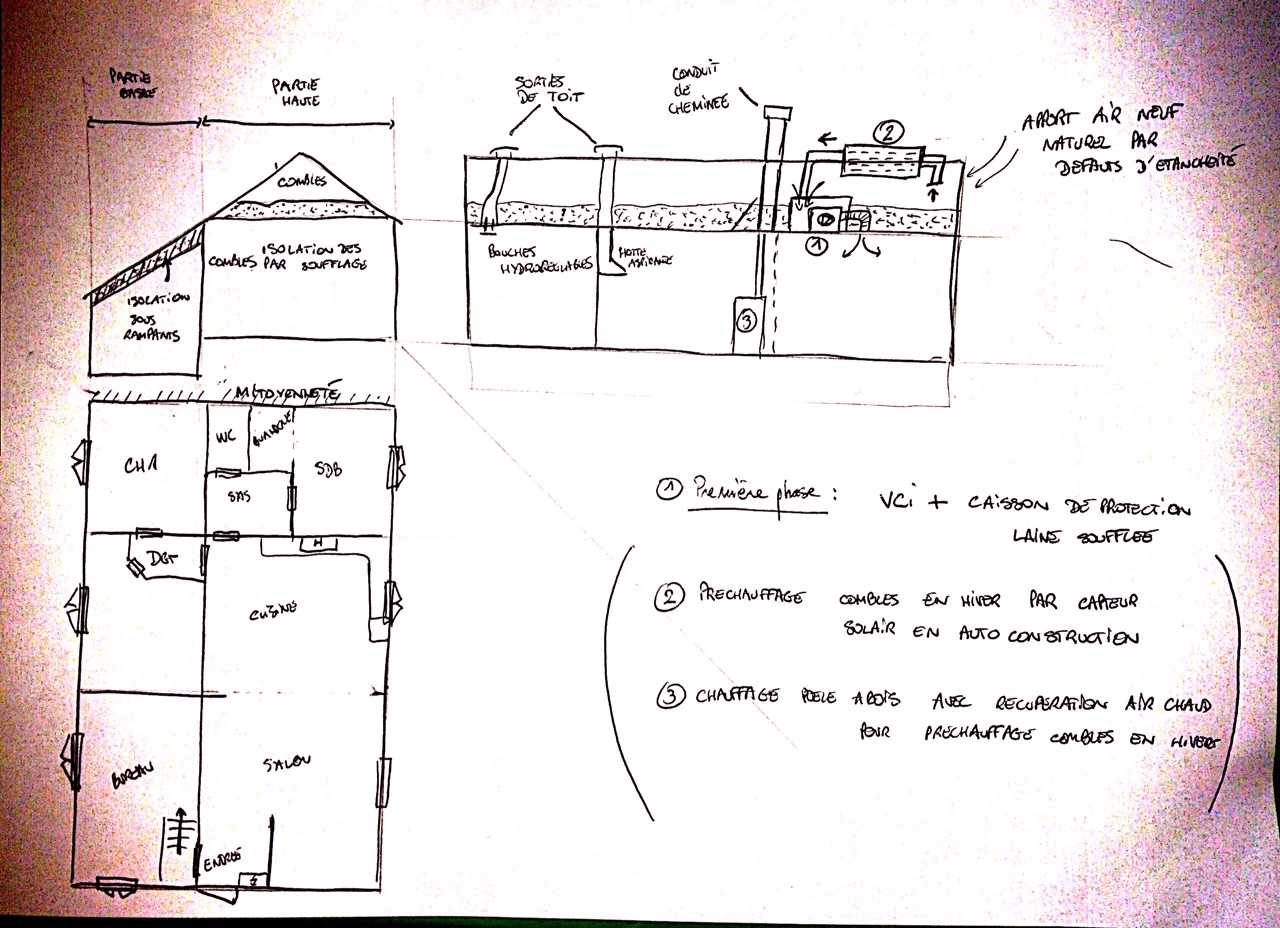 PARTIE
BASSE
PARTIE
HAUTE
COMBLES
ISOLATION DES
COMBLES PAR SOUFFLAGE
ISOLATION
SOUS
RAMPANTS
SORTIES
DE TOIT
CONDUIT
de
CHEMINEE
②
APPORT AIR NEUF
NATUREL PAR
DEFAUTS D'ETANCHEITÉ
BOUCHES
HYDROREGLABLES
HOTTE
ASPIRANTE
①
③
MITOYENNETÉ
CH1
WC
BUANDERIE
SDB
SAS
DGT
H
CUISINE
BUREAU
SALON
ENTREE
① Première phase : VCi + CAISSON DE PROTECTION
LAINE SOUFFLEE
② PRECHAUFFAGE COMBLES EN HIVER PAR CAPTEUR
SOLAIR EN AUTO CONSTRUCTION
③ CHAUFFAGE POELE A BOIS AVEC RECUPERATION AIR CHAUD
POUR PRECHAUFFAGE COMBLES EN HIVERS